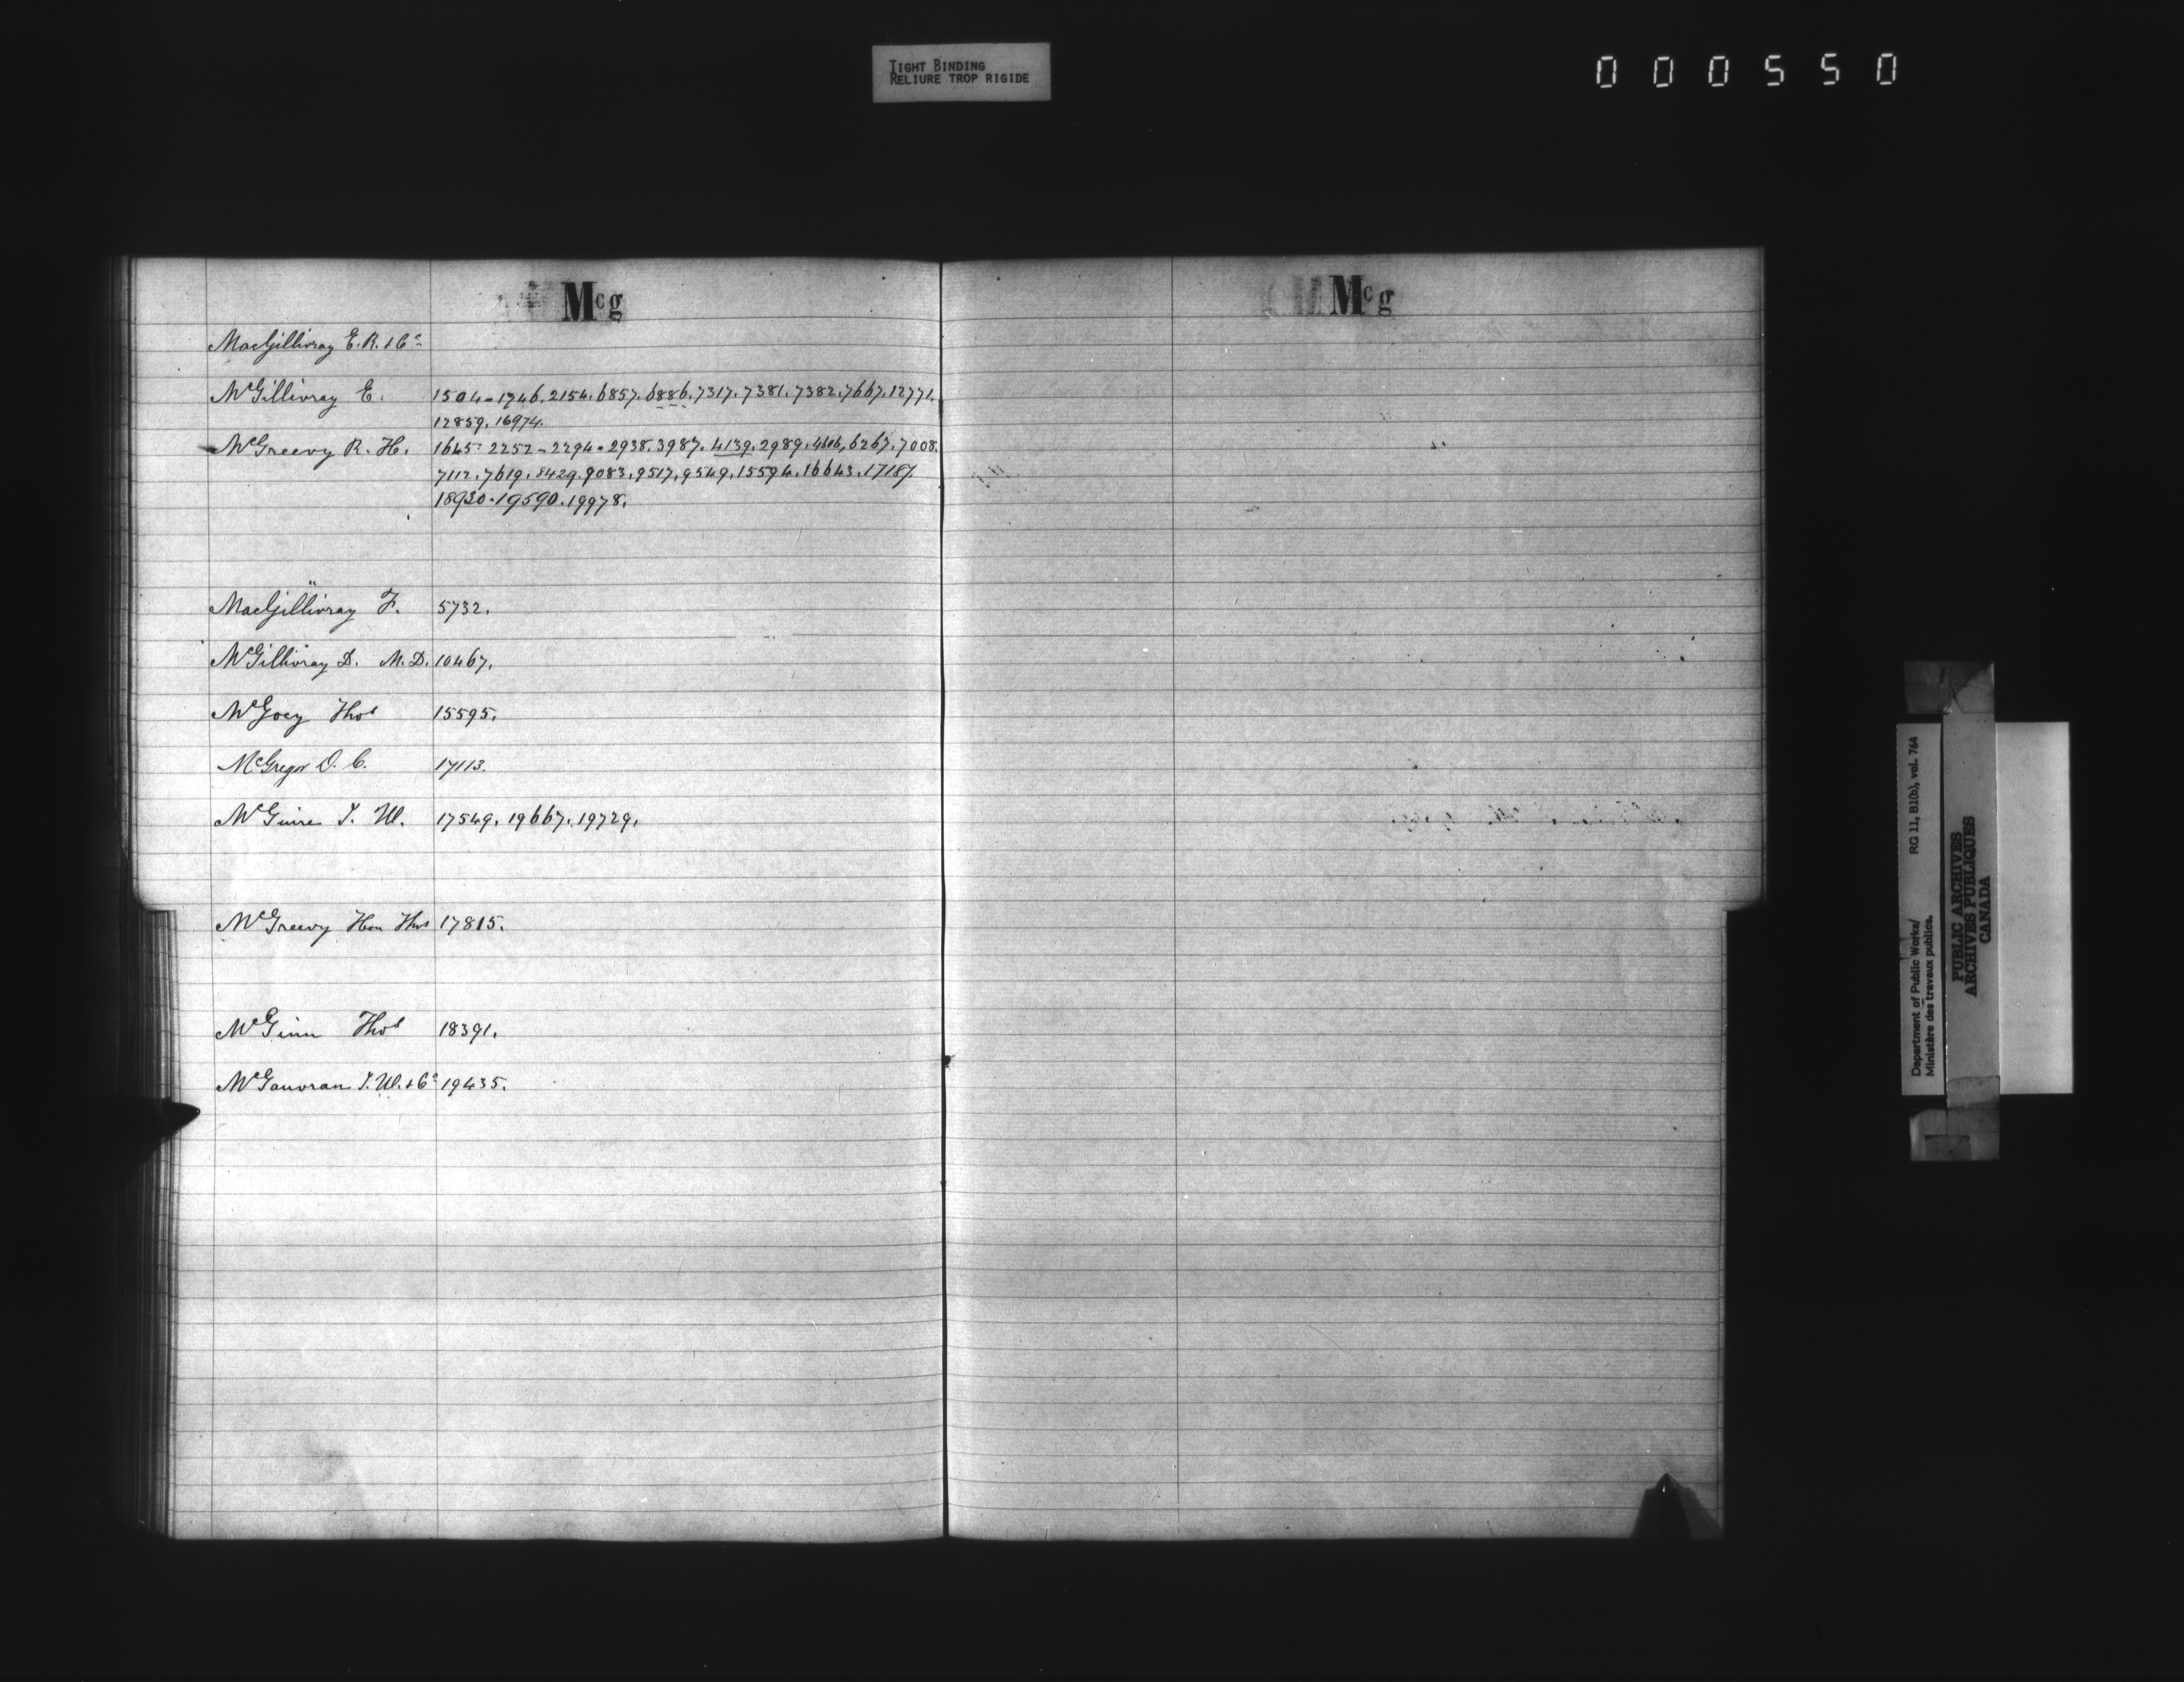 TIGHT BINDING
RELIURE TROP RIGIDE
000550
Mcg
MacGillivray E. R. & Co
McGillivray E. 1504 - 1746. 2154. 6857. 6886. 7317. 7381. 7382. 7667. 12771.
12859. 16974.
McGreevy R. H. 1645 2252 - 2294 - 2938. 3987. 4139. 2989. 4606, 6267. 7008.
7112. 7619. 8429. 9083. 9517. 9549. 15594. 16643. 17187.
18930. 19590. 19978.
MacGillivray F. 5732.
McGillivray D. M.D. 10467.
McGoey Thos 15595.
McGregor D. C. 17113.
McGuire T. W. 17549. 19667. 19729.
McGreevy Hon Thos 17815.
McGinn Thos 18391.
McGauvran J. W. & Co 19435.
Mcg
Department of Public Works/ RG 11, B1(b), vol. 764
Ministère des travaux publics.
PUBLIC ARCHIVES
ARCHIVES PUBLIQUES
CANADA